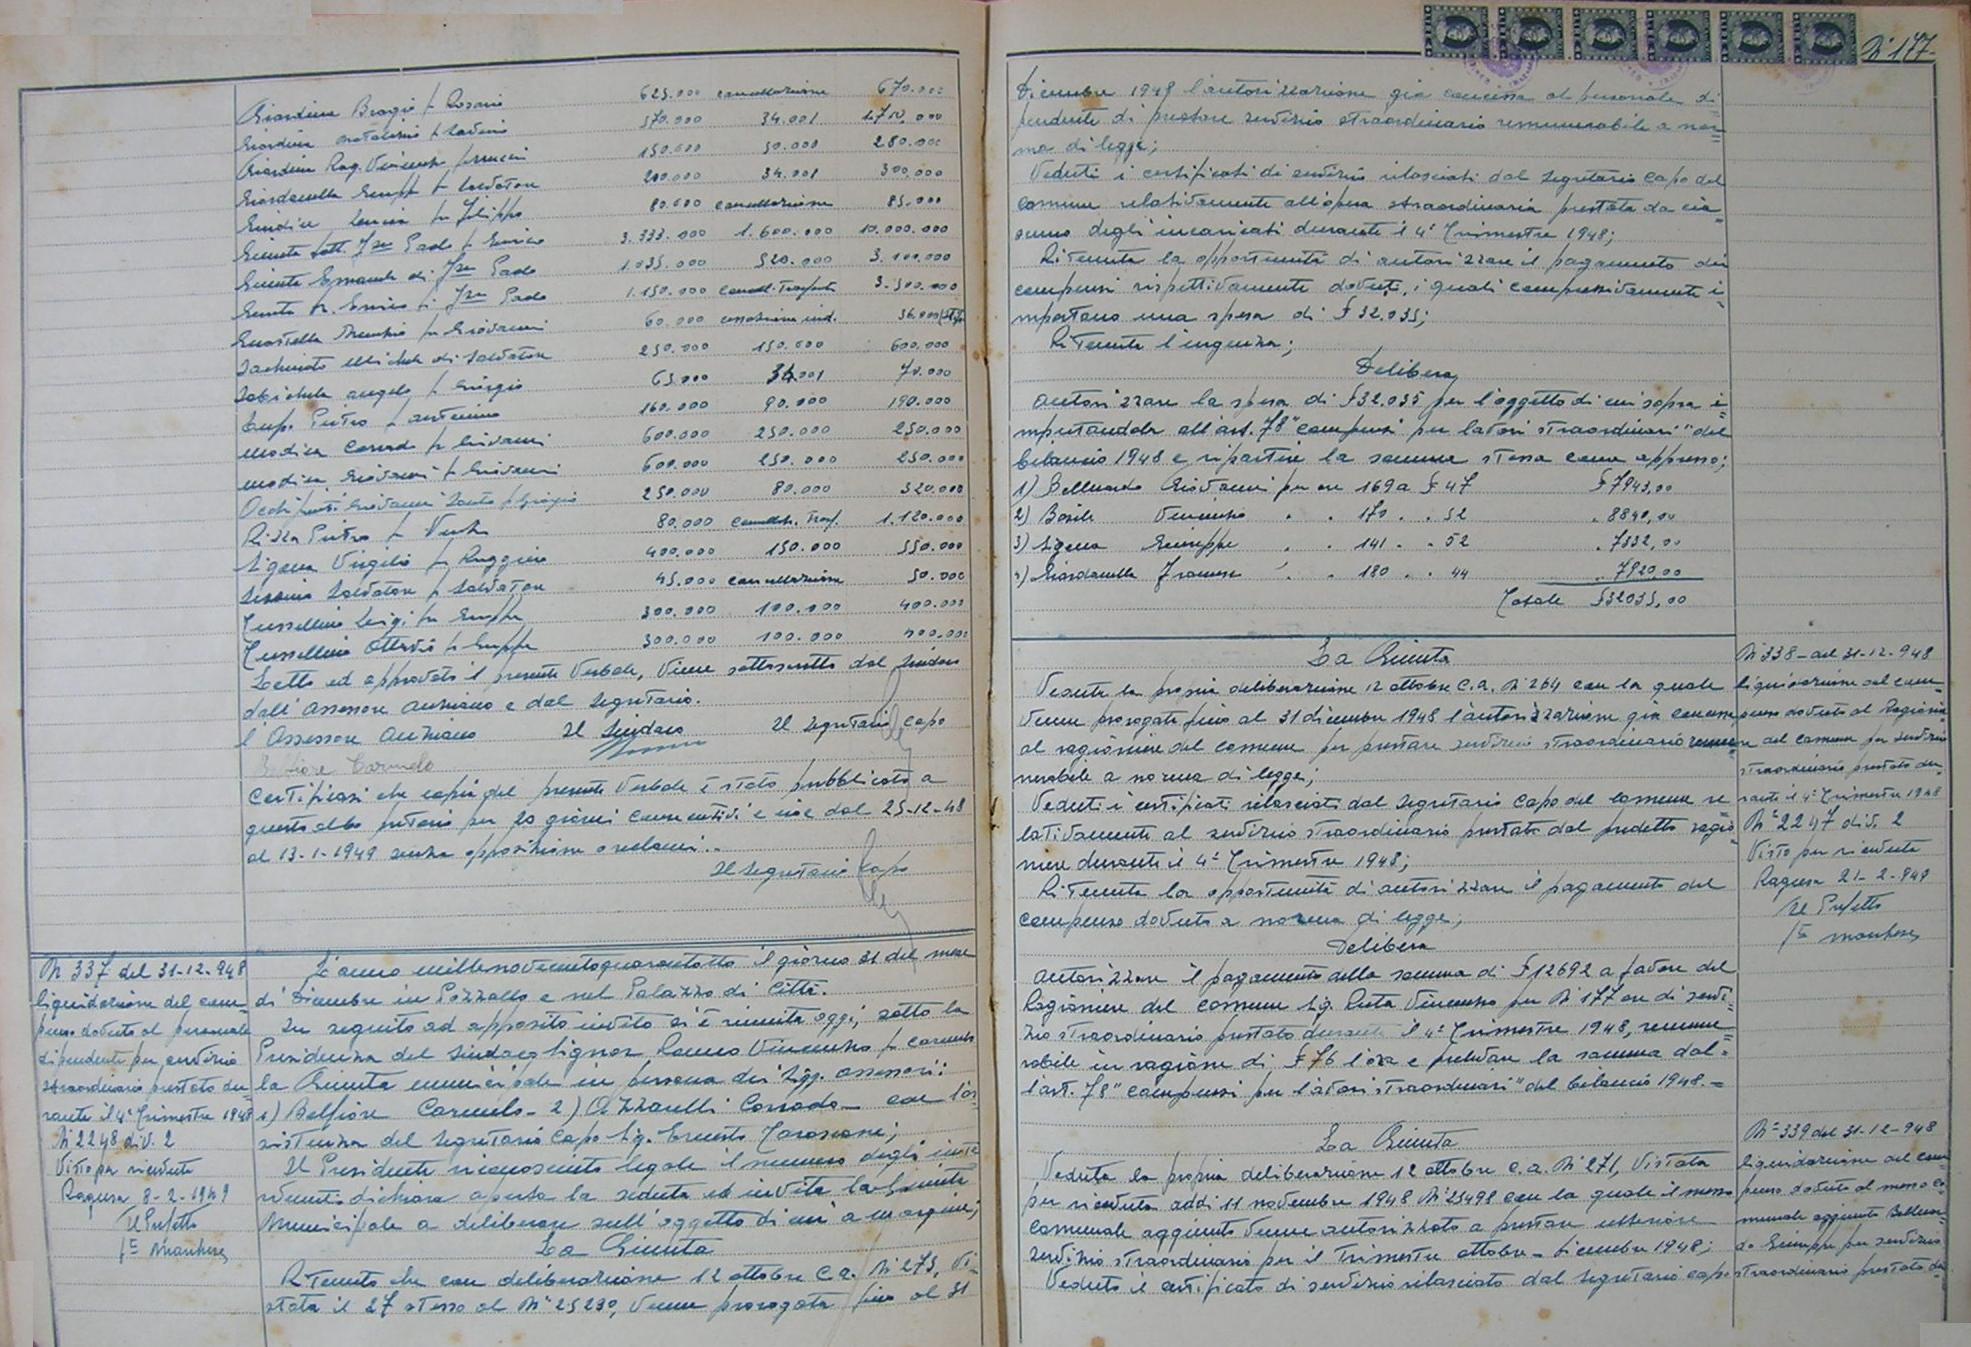 Giardina Biagio fu Rosario 625.000 cancellazione 670.000
Giardina fu Saverio 570.000 34.001 1.750.000
Giardina Rag. Vincenzo 150.000 50.000 280.000
Giardinella Giuseppe fu Salvatore 200.000 34.001 300.000
Giudice fu Filippo 80.000 cancellazione 85.000
Giunta Dott. Fra Paolo fu Enrico 3.333.000 1.600.000 10.000.000
Giunta Emanuele di Fra Paolo 1.035.000 520.000 3.100.000
Giunta Enrico di Fra Paolo 1.150.000 3.500.000
Giovanni 60.000 36.000
Iachinoto Michele di Salvatore 250.000 150.000 600.000
angelo fu Giorgio 65.000 34.001 70.000
Pietro fu antonino 160.000 90.000 190.000
Modica Corrado fu Giovanni 600.000 250.000 250.000
Modica Giovanni fu Giovanni 600.000 250.000 250.000
Occhipinti Giovanni Santo fu Giorgio 250.000 80.000 320.000
Rizza Pietro fu 80.000 1.120.000
Sigona Virgilio fu Ruggiero 400.000 150.000 550.000
Salvatore fu Salvatore 45.000 cancellazione 50.000
Tussellino Luigi fu Giuseppe 300.000 100.000 400.000
Tussellino Ottavio fu Giuseppe 300.000 100.000 400.000
Letto ed approvato il presente Verbale, viene sottoscritto dal Sindaco
dall'Assessore Anziano e dal Segretario.
l'Assessore Anziano Il Sindaco Il Segretario Capo
Belfiore Carmelo
Certificasi che copia del presente Verbale è stato pubblicato a
questo albo pretorio per 20 giorni consecutivi e cioè dal 25-12-48
al 13-1-1949 senza opposizione o reclami.
Il Segretario Capo
N° 337 del 31-12-948
liquidazione del com=
penso dovuto al personale
dipendente per servizio
straordinario prestato du=
rante il 4° Trimestre 1948
N° 2248 div. 2
Visto per ricevuta
Ragusa 8-2-1949
Il Prefetto
L'anno millenovecentoquarantotto il giorno 31 del mese
di Dicembre in Pozzallo e nel Palazzo di Città.
In seguito ad apposito invito si è riunita oggi, sotto la
Presidenza del Sindaco Signor Vincenzo fu Carmelo
la Giunta municipale in persona dei Sigg. assessori:
1) Belfiore Carmelo - 2) Azzarelli Corrado - con l'as=
sistenza del Segretario Capo Sig. Ernesto
Il Presidente riconosciuto legale il numero degli inter=
venuti dichiara aperta la seduta ed invita la Giunta
Municipale a deliberare sull'oggetto di cui a margine;
La Giunta
Ritenuto che con deliberazione 12 ottobre c.a. N° 273, vi=
stata il 27 stesso al N° 25290, venne prorogata fino al 31
N° 177
Dicembre 1948 l'autorizzazione già concessa al personale di=
pendente di prestare servizio straordinario remunerabile a nor=
ma di legge;
Veduti i certificati di servizio rilasciati dal Segretario Capo del
Comune relativamente all'opera straordinaria prestata da cia=
scuno degli incaricati durante il 4° Trimestre 1948;
Ritenuta la opportunità di autorizzare il pagamento dei
compensi rispettivamente dovuti, i quali complessivamente i=
mportano una spesa di £ 32.035;
Ritenuta l'urgenza;
Delibera
Autorizzare la spesa di £ 32.035 per l'oggetto di cui sopra i=
mputandola all'art. 78 "compensi per lavori straordinari" del
bilancio 1948 e ripartire la somma stessa come appresso;
1) Belluardo Giovanni per ore 169 a £ 47 £ 7943,00
2) Basile Vincenzo " " 170 " " 52 " 8840,00
3) Sigona Giuseppe " " 141 " " 52 " 7332,00
4) Giardanella " " 180 " " 44 " 7920,00
Totale £ 32035,00
La Giunta
Veduta la propria deliberazione 12 ottobre c.a. N° 264 con la quale
venne prorogata fino al 31 dicembre 1948 l'autorizzazione già concessa
al ragioniere del Comune per prestare servizio straordinario remu=
nerabile a norma di legge;
Veduti i certificati rilasciati dal Segretario Capo del Comune re=
lativamente al servizio straordinario prestato dal predetto ragio=
niere durante il 4° Trimestre 1948;
Ritenuta la opportunità di autorizzare il pagamento del
compenso dovuto a norma di legge;
Delibera
Autorizzare il pagamento della somma di £ 12692 a favore del
Ragioniere del Comune Sig. Vincenzo per N° 177 ore di servi=
zio straordinario prestato durante il 4° Trimestre 1948, remune=
rabile in ragione di £ 76 l'ora e prelevare la somma dal=
l'art. 78 "compensi per lavori straordinari" del bilancio 1948.=
N° 338 del 31-12-948
liquidazione del com=
penso dovuto al Ragionie=
re del comune per servizio
straordinario prestato du=
rante il 4° Trimestre 1948
N° 2247 div. 2
Visto per ricevuta
Ragusa 21-2-949
Il Prefetto
La Giunta
Veduta la propria deliberazione 12 ottobre c.a. N° 271, vistata
per ricevuta addì 11 novembre 1948 N° 25498 con la quale il messo
comunale aggiunto venne autorizzato a prestare ulteriore
servizio straordinario per il trimestre ottobre - dicembre 1948;
Veduto il certificato di servizio rilasciato dal Segretario capo
N° 339 del 31-12-948
liquidazione del com=
penso dovuto al messo co=
munale aggiunto Belluar=
do Giuseppe per servizio
straordinario prestato du=